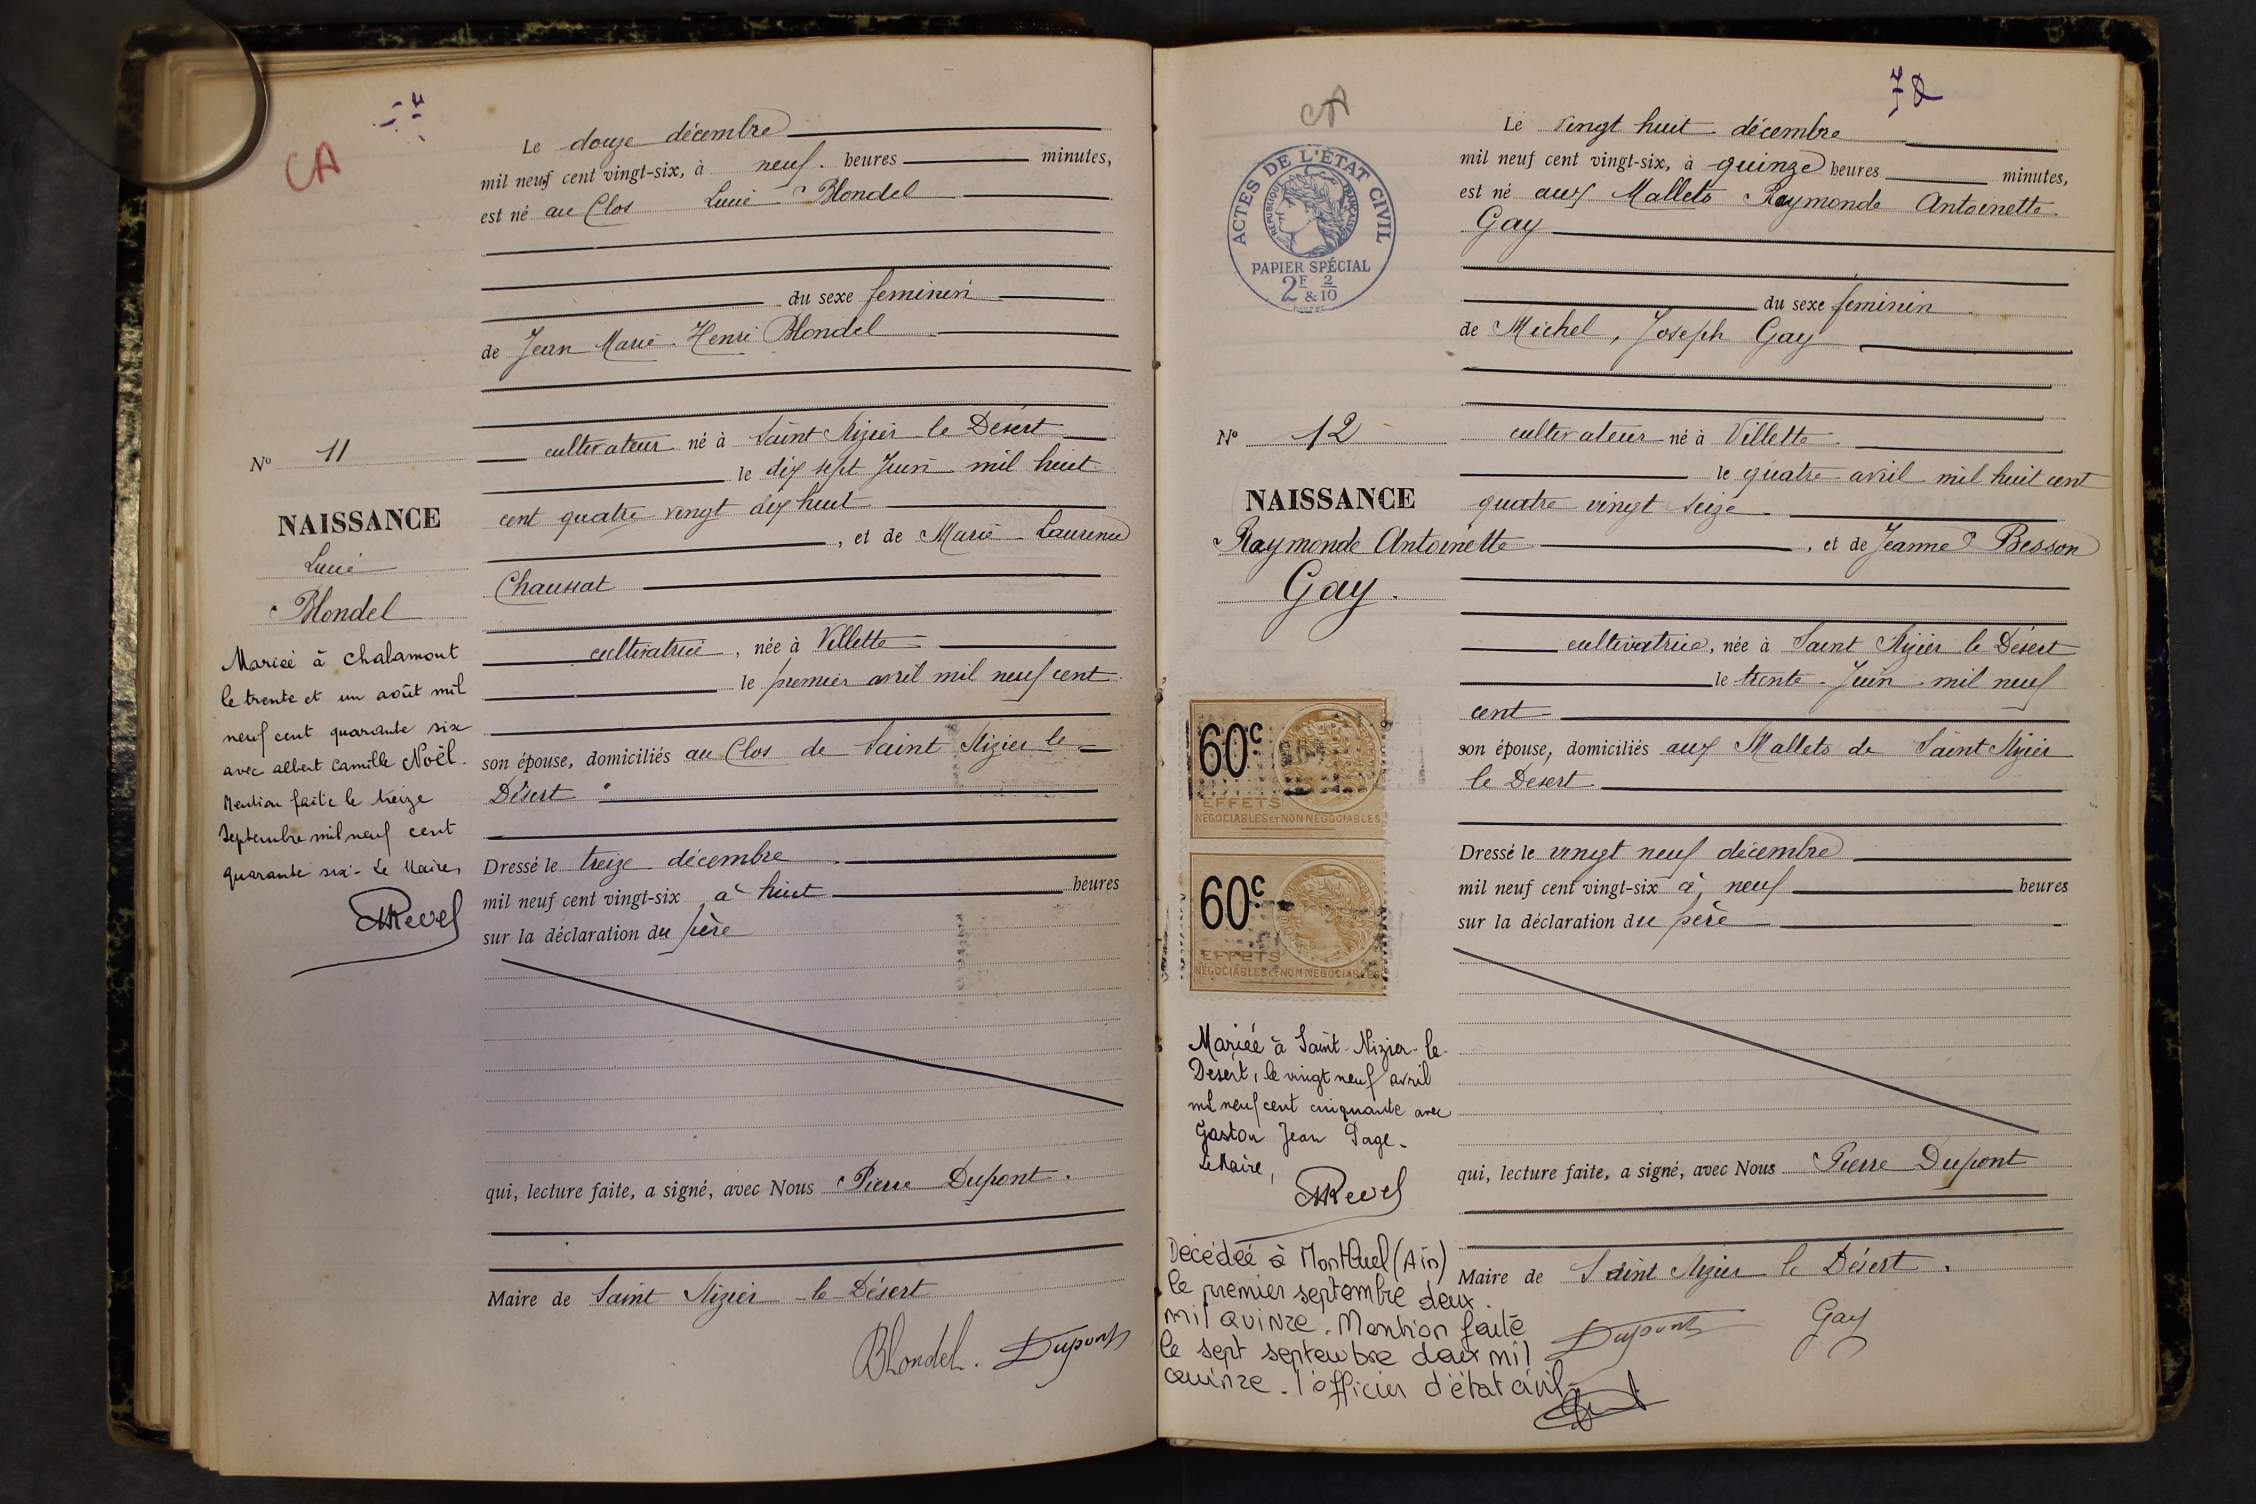 CA
Le douze décembre
mil neuf cent vingt-six, à neuf heures minutes,
est né au Clos Lucie Blondel
du sexe feminin
de Jean Marie Henri Blondel
cultivateur né à Saint Nizier le Désert
le dix sept Juin mil huit
cent quatre vingt dix huit
, et de Marie Laurence
Chaussat
cultivatrice, née à Villette
le premier avril mil neuf cent
son épouse, domiciliés au Clos de Saint Nizier le
Désert
Dressé le treize décembre
mil neuf cent vingt-six à huit heures
sur la déclaration du père
qui, lecture faite, a signé, avec Nous Pierre Dupont.
Maire de Saint Nizier le Désert
Blondel. Dupont
No 11
NAISSANCE
Lucie
Blondel
Mariée à Chalamont
le trente et un août mil
neuf cent quarante six
avec albert Camille Noël.
Mention faite le treize
Septembre mil neuf cent
quarante six - Le Maire,
Revel
CA
Le vingt huit décembre
mil neuf cent vingt-six, à quinze heures minutes,
est né aux Mallets Raymonde Antoinette
Gay
du sexe féminin
de Michel, Joseph Gay
cultivateur né à Villette
le quatre avril mil huit cent
quatre vingt seize
, et de Jeanne Besson
cultivatrice, née à Saint Nizier le Désert
le trente Juin mil neuf
cent
son épouse, domiciliés aux Mallets de Saint Nizier
le Desert
Dressé le vingt neuf décembre
mil neuf cent vingt-six à neuf heures
sur la déclaration du père
qui, lecture faite, a signé, avec Nous Pierre Dupont
Maire de Saint Nizier le Désert.
Dupont Gay
ACTES DE L'ÉTAT CIVIL
RÉPUBLIQUE FRANÇAISE
PAPIER SPÉCIAL
2F & 2/10
No 12
NAISSANCE
Raymonde Antoinette
Gay.
60c
EFFETS
NÉGOCIABLES ET NON NÉGOCIABLES
60c
EFFETS
NÉGOCIABLES ET NON NÉGOCIABLES
Mariée à Saint-Nizier-le-
Désert, le vingt neuf avril
mil neuf cent cinquante avec
Gaston Jean Page.
Le Maire,
Revel
Décédée à Montluel (Ain)
le premier septembre deux
mil quinze. Mention faite
le sept septembre deux mil
quinze. l'officier d'état civil